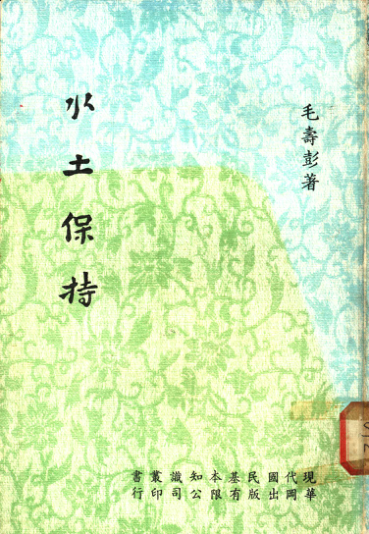 毛壽彭著
水土保持
現代國民基本知識叢書
華岡出版有限公司印行